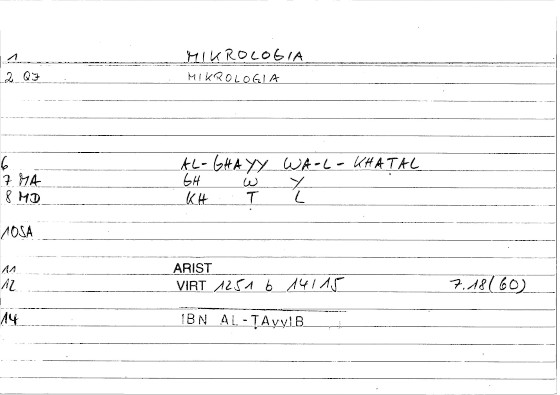 1 MIKROLOGIA
2 QJ MIKROLOGIA
6 AL-GHAYY WA-L-KHAṬAL
7 MA GH W Y
8 MD KH Ṭ L
10SA
11 ARIST
12 VIRT 1251 b 14/15 7.18(60)
14 IBN AL-ṬAYYIB